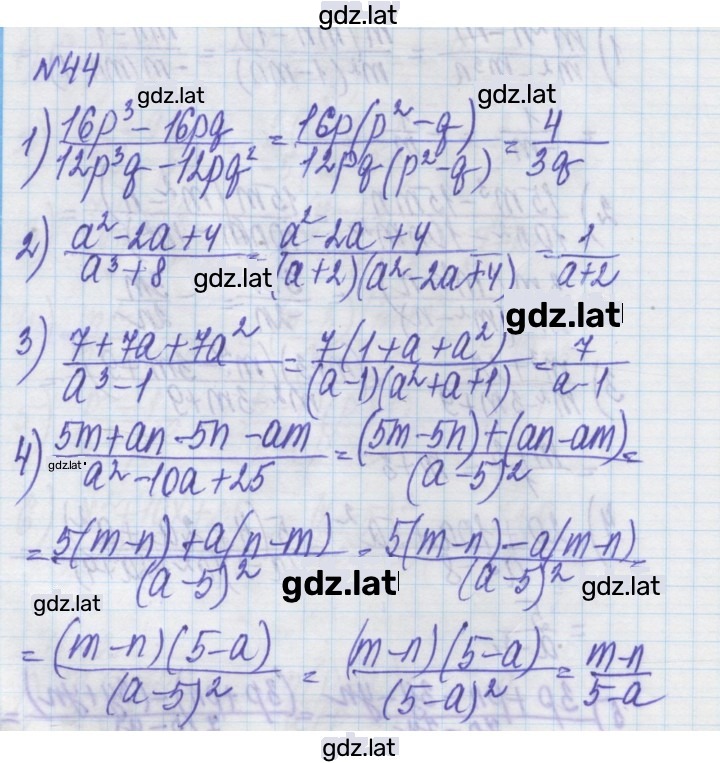 gdz.lat
N44
gdz.lat gdz.lat
1) (16p³ - 16pq)/(12p³q - 12pq²) = (16p(p² - q))/(12pq(p² - q)) = 4/(3q)
2) (a² - 2a + 4)/(a³ + 8) = (a² - 2a + 4)/((a + 2)(a² - 2a + 4)) = 1/(a + 2)
gdz.lat
gdz.lat
3) (7 + 7a + 7a²)/(a³ - 1) = (7(1 + a + a²))/((a - 1)(a² + a + 1)) = 7/(a - 1)
4) (5m + an - 5n - am)/(a² - 10a + 25) = ((5m - 5n) + (an - am))/((a - 5)²) =
gdz.lat
= (5(m - n) + a(n - m))/((a - 5)²) = (5(m - n) - a(m - n))/((a - 5)²)
gdz.lat gdz.lat gdz.lat
= ((m - n)(5 - a))/((a - 5)²) = ((m - n)(5 - a))/((5 - a)²) = (m - n)/(5 - a)
gdz.lat